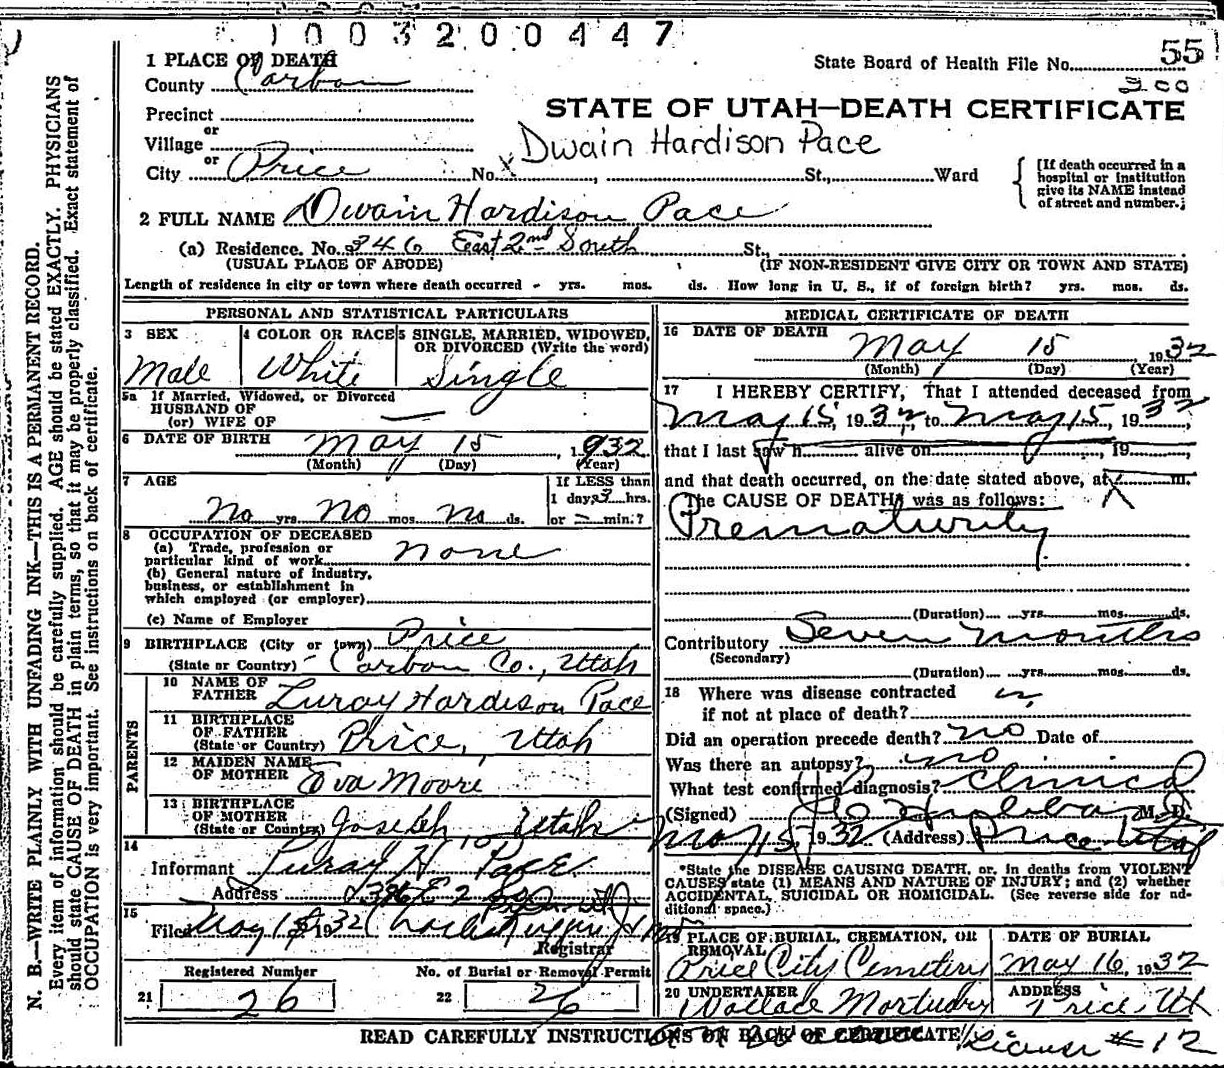 1003200447
1 PLACE OF DEATH
State Board of Health File No. 55
County Carbon
300
STATE OF UTAH—DEATH CERTIFICATE
Precinct
or
Village
Dwain Hardison Pace
or
City Price No. x, St., Ward
[If death occurred in a
hospital or institution
give its NAME instead
of street and number.]
2 FULL NAME Dwain Hardison Pace
(a) Residence. No. 346 East 2nd South St.,
(USUAL PLACE OF ABODE) (IF NON-RESIDENT GIVE CITY OR TOWN AND STATE)
Length of residence in city or town where death occurred - yrs. mos. ds. How long in U. S., if of foreign birth? yrs. mos. ds.
PERSONAL AND STATISTICAL PARTICULARS
3 SEX
Male
4 COLOR OR RACE
White
5 SINGLE, MARRIED, WIDOWED,
OR DIVORCED (Write the word)
Single
5a If Married, Widowed, or Divorced
HUSBAND OF
(or) WIFE OF —
6 DATE OF BIRTH May 15, 1932
(Month) (Day) (Year)
7 AGE
No yrs. No mos. No ds.
If LESS than
1 day, 3 hrs.
or — min.?
8 OCCUPATION OF DECEASED
(a) Trade, profession or
particular kind of work none
(b) General nature of industry,
business, or establishment in
which employed (or employer)
(c) Name of Employer
9 BIRTHPLACE (City or town) Price
(State or Country) - Carbon Co., Utah
PARENTS
10 NAME OF
FATHER Luray Hardison Pace
11 BIRTHPLACE
OF FATHER
(State or Country) Price, Utah
12 MAIDEN NAME
OF MOTHER Eva Moore
13 BIRTHPLACE
OF MOTHER
(State or Country) Joseph, Utah
14
Informant Luray H Pace
Address 346 E 2 So
15
Filed May 15 1932
Registrar
Registered Number
21 26
No. of Burial or Removal Permit
22 26
MEDICAL CERTIFICATE OF DEATH
16 DATE OF DEATH
May 15, 1932
(Month) (Day) (Year)
17 I HEREBY CERTIFY, That I attended deceased from
May 15, 1932, to May 15, 1932,
that I last saw h alive on, 19,
and that death occurred, on the date stated above, at m.
The CAUSE OF DEATH was as follows:
Prematurity
(Duration) yrs. mos. ds.
Contributory Seven months
(Secondary)
(Duration) yrs. mos. ds.
18 Where was disease contracted
if not at place of death?
Did an operation precede death? no Date of
Was there an autopsy? no
What test confirmed diagnosis? Clinical
(Signed) M. D.
May 15, 1932 (Address) Price Utah
*State the DISEASE CAUSING DEATH, or, in deaths from VIOLENT
CAUSES state (1) MEANS AND NATURE OF INJURY; and (2) whether
ACCIDENTAL, SUICIDAL OR HOMICIDAL. (See reverse side for ad-
ditional space.)
19 PLACE OF BURIAL, CREMATION, OR
REMOVAL
Price City Cemetery
DATE OF BURIAL
May 16, 1932
20 UNDERTAKER
Wallace Mortuary
ADDRESS
Price, Ut
READ CAREFULLY INSTRUCTIONS ON BACK OF CERTIFICATE
License # 12
N. B.—WRITE PLAINLY WITH UNFADING INK—THIS IS A PERMANENT RECORD.
Every item of information should be carefully supplied. AGE should be stated EXACTLY. PHYSICIANS
should state CAUSE OF DEATH in plain terms, so that it may be properly classified. Exact statement of
OCCUPATION is very important. See instructions on back of certificate.